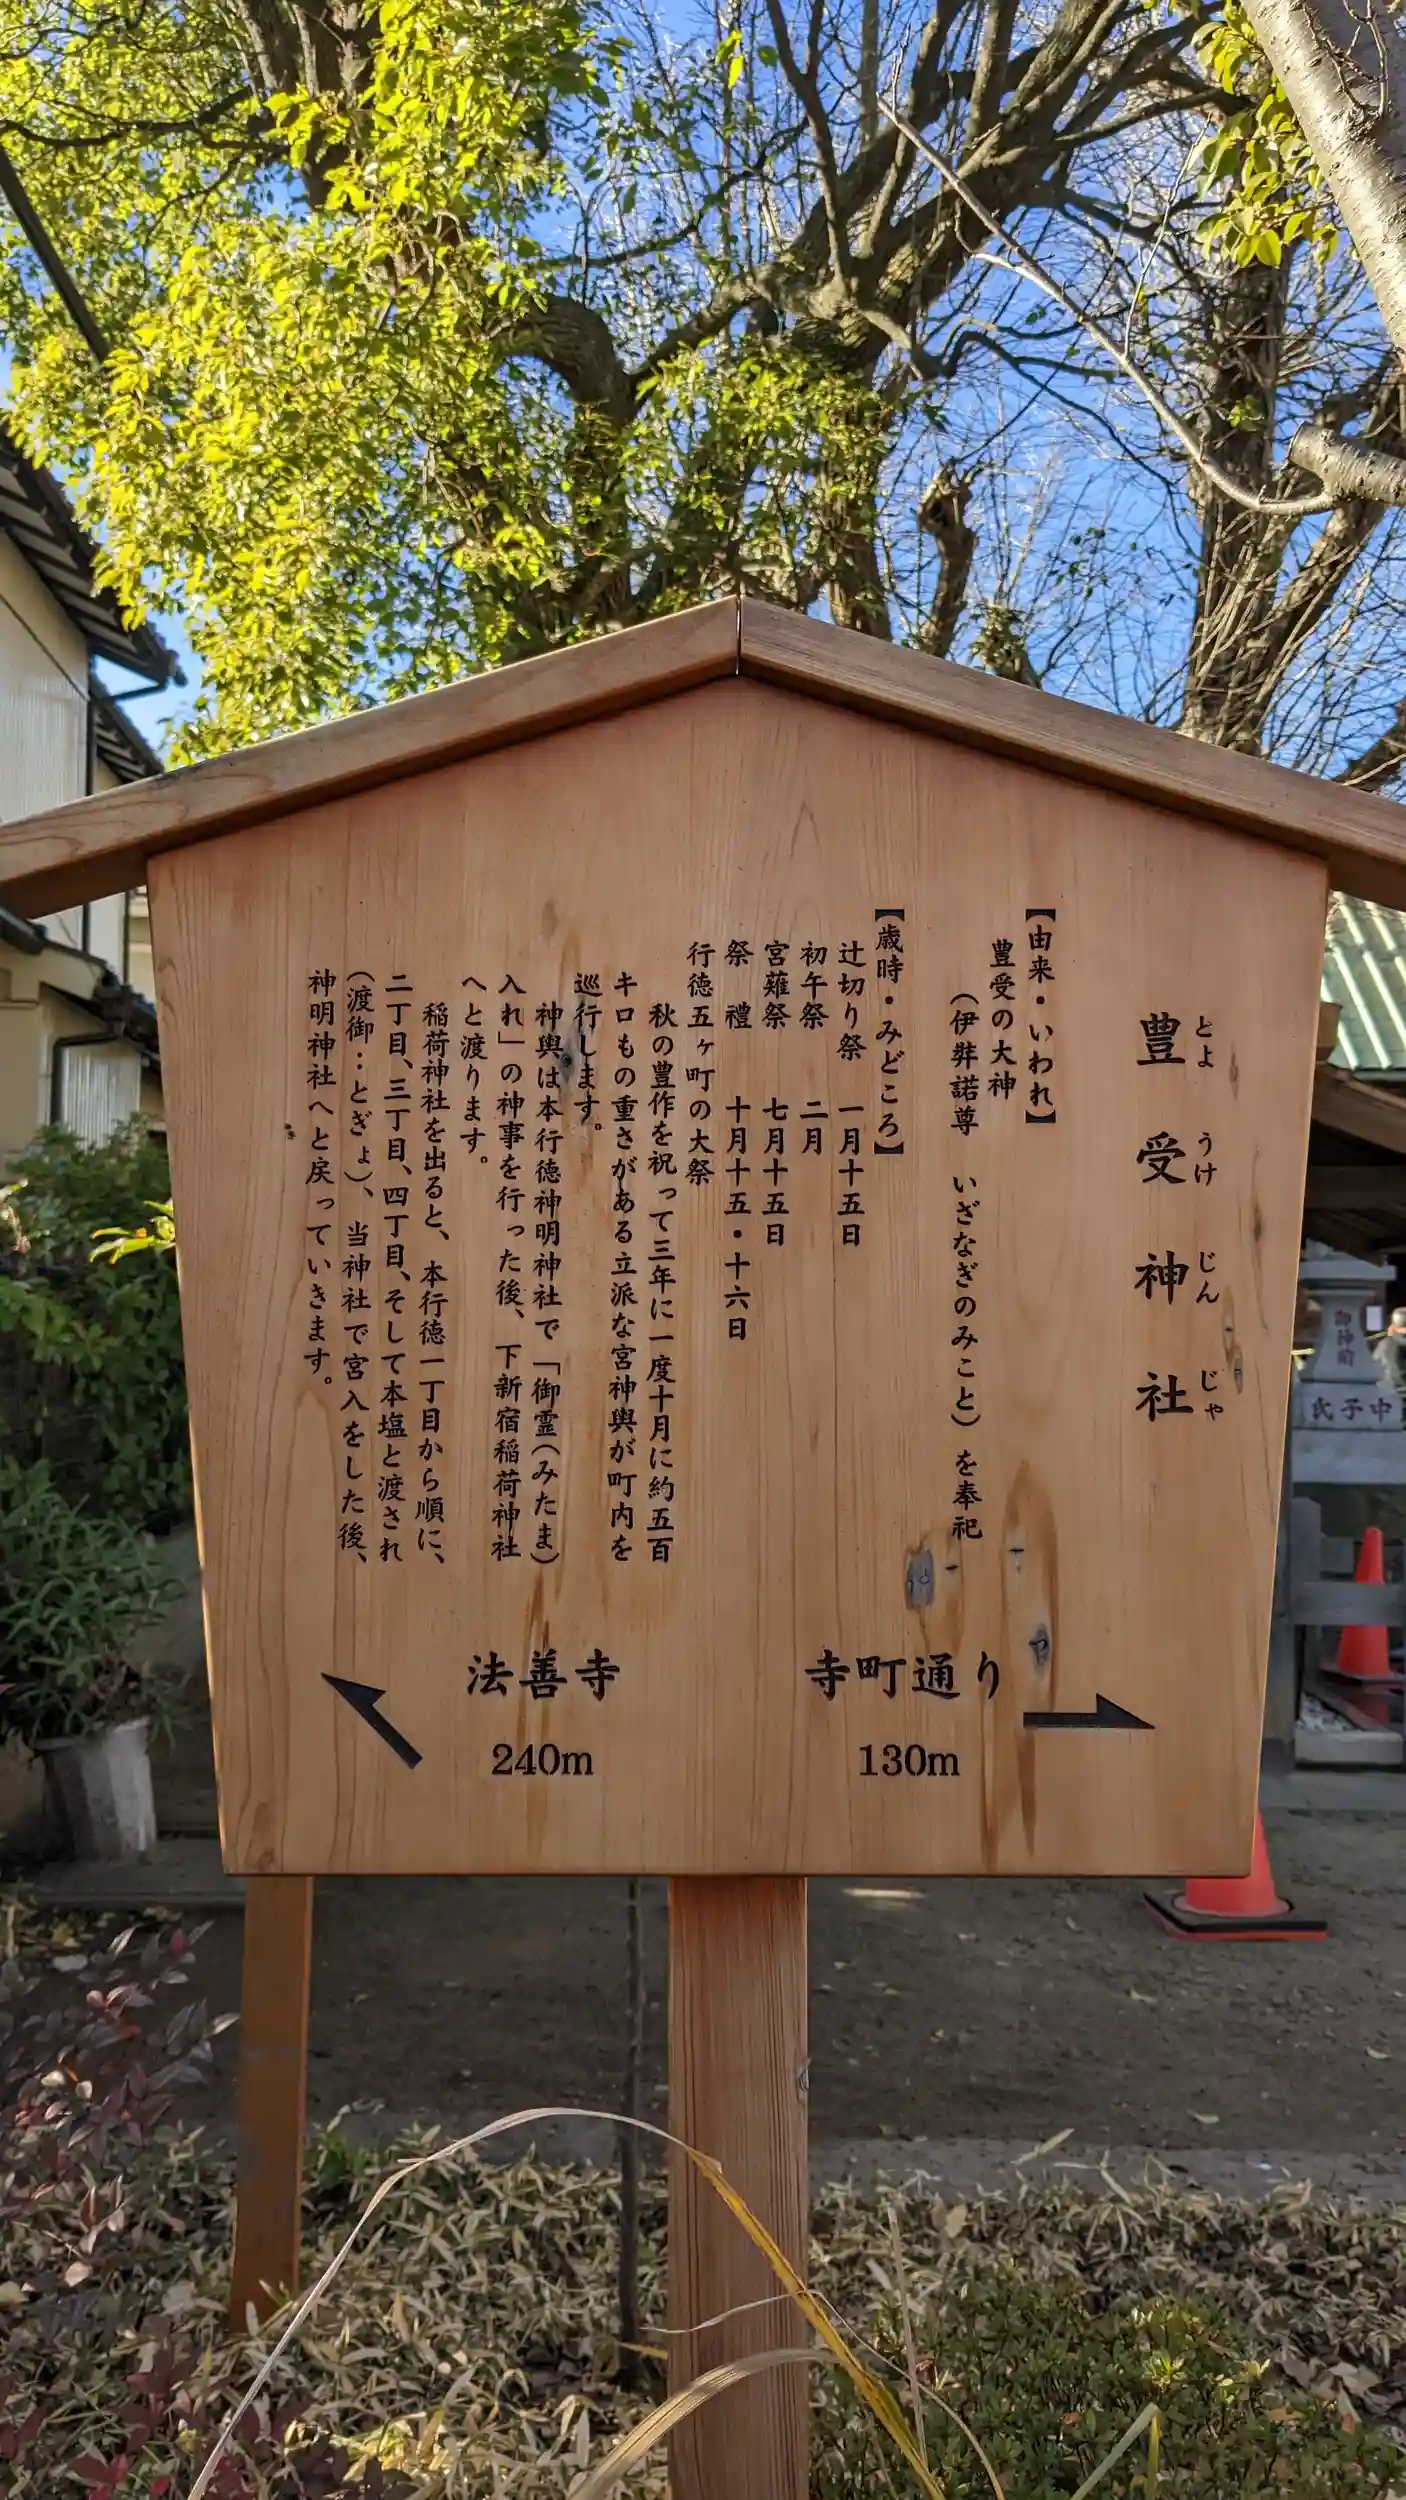 豊受神社
とようけじんじゃ
【由来・いわれ】
豊受の大神
(伊弉諾尊 いざなぎのみこと)を奉祀
【歳時・みどころ】
辻切り祭 一月十五日
初午祭 二月
宮薙祭 七月十五日
祭禮 十月十五・十六日
行徳五ヶ町の大祭
秋の豊作を祝って三年に一度十月に約五百
キロもの重さがある立派な宮神輿が町内を
巡行します。
神輿は本行徳神明神社で「御霊(みたま)
入れ」の神事を行った後、下新宿稲荷神社
へと渡ります。
稲荷神社を出ると、本行徳一丁目から順に、
二丁目、三丁目、四丁目、そして本塩と渡され
(渡御：とぎょ)、当神社で宮入をした後、
神明神社へと戻っていきます。
寺町通り
130m
法善寺
240m
御神前
中子氏